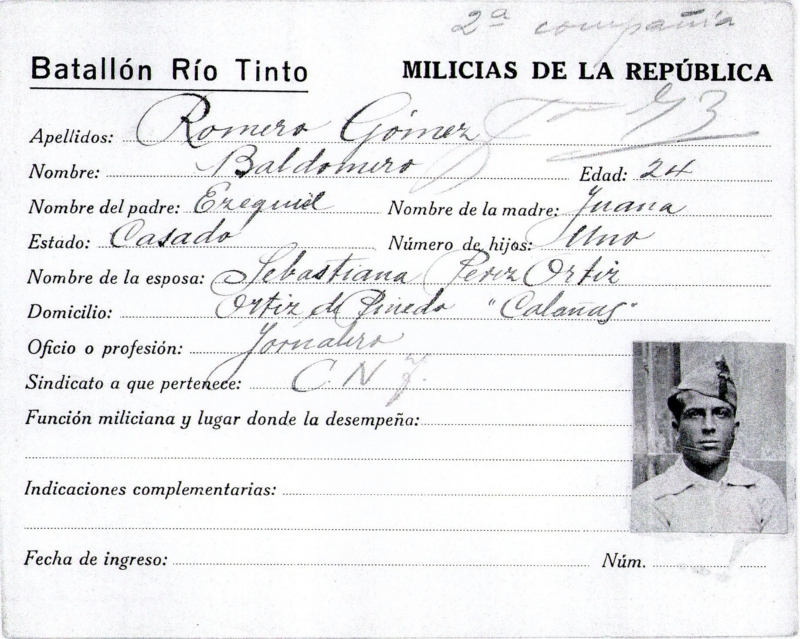 2ª compañía
Batallón Río Tinto MILICIAS DE LA REPÚBLICA
Apellidos: Romero Gómez 73
Nombre: Baldomero Edad: 24
Nombre del padre: Ezequiel Nombre de la madre: Juana
Estado: Casado Número de hijos: Uno
Nombre de la esposa: Sebastiana Pérez Ortiz
Domicilio: Ortiz de Pinedo "Calañas"
Oficio o profesión: Jornalero
Sindicato a que pertenece: C N T.
Función miliciana y lugar donde la desempeña:
Indicaciones complementarias:
Fecha de ingreso: Núm.